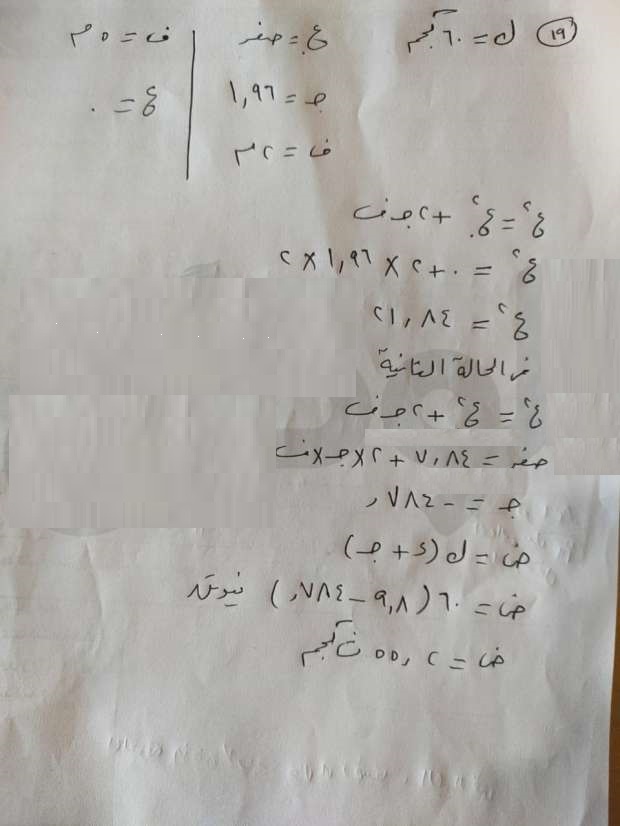 ١٩ ك = ٦٠ كجم ع. = صفر ف = ٥ م
جـ = ١,٩٦ ع = ٠
ف = ٢ م
ع٢ = ع.٢ + ٢ جـ ف
ع٢ = ٠ + ٢ × ١,٩٦ × ٢
ع٢ = ٢١,٨٤
فى الحالة الثانية
ع٢ = ع.٢ + ٢ جـ ف
صفر = ٧,٨٤ + ٢ × جـ × ف
جـ = - ٧٨٤,
ض = ك (د + جـ)
ض = ٦٠ (٩,٨ - ٧٨٤,) نيوتن
ض = ٥٥,٢ ث كجم